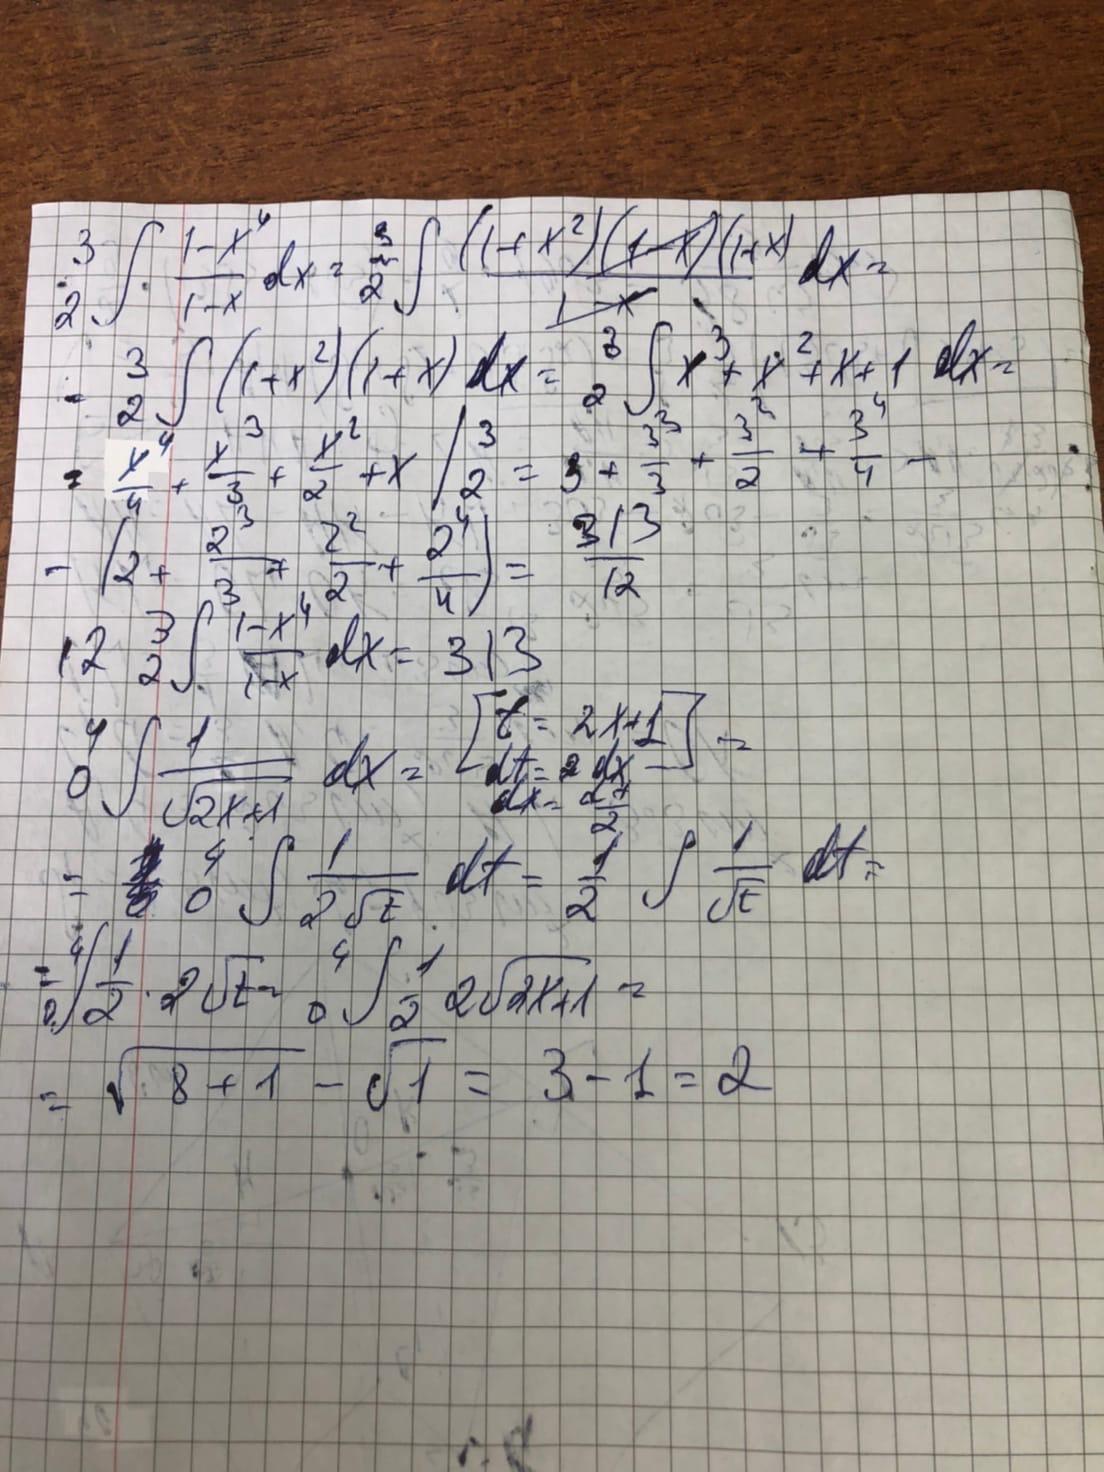 3 2 ∫ (1-x^4)/(1-x) dx = 3 2 ∫ ((1+x^2)(1-x)(1+x))/(1-x) dx =
= 3 2 ∫ (1+x^2)(1+x) dx = 3 2 ∫ x^3+x^2+x+1 dx =
= x^4/4 + x^3/3 + x^2/2 + x / 3 2 = 3 + 3^3/3 + 3^2/2 + 3^4/4 -
- (2 + 2^3/3 + 2^2/2 + 2^4/4) = 313/12
12 3 2 ∫ (1-x^4)/(1-x) dx = 313
4 0 ∫ 1/√(2x+1) dx = [t = 2x+1] =
dt = 2 dx
dx = dt/2
= 4 0 ∫ 1/(2√t) dt = 1/2 ∫ 1/√t dt =
= 4 0 ∫ 1/2 · 2√t = 4 0 ∫ 1/2 2√(2x+1) =
= √(8+1) - √1 = 3-1 = 2